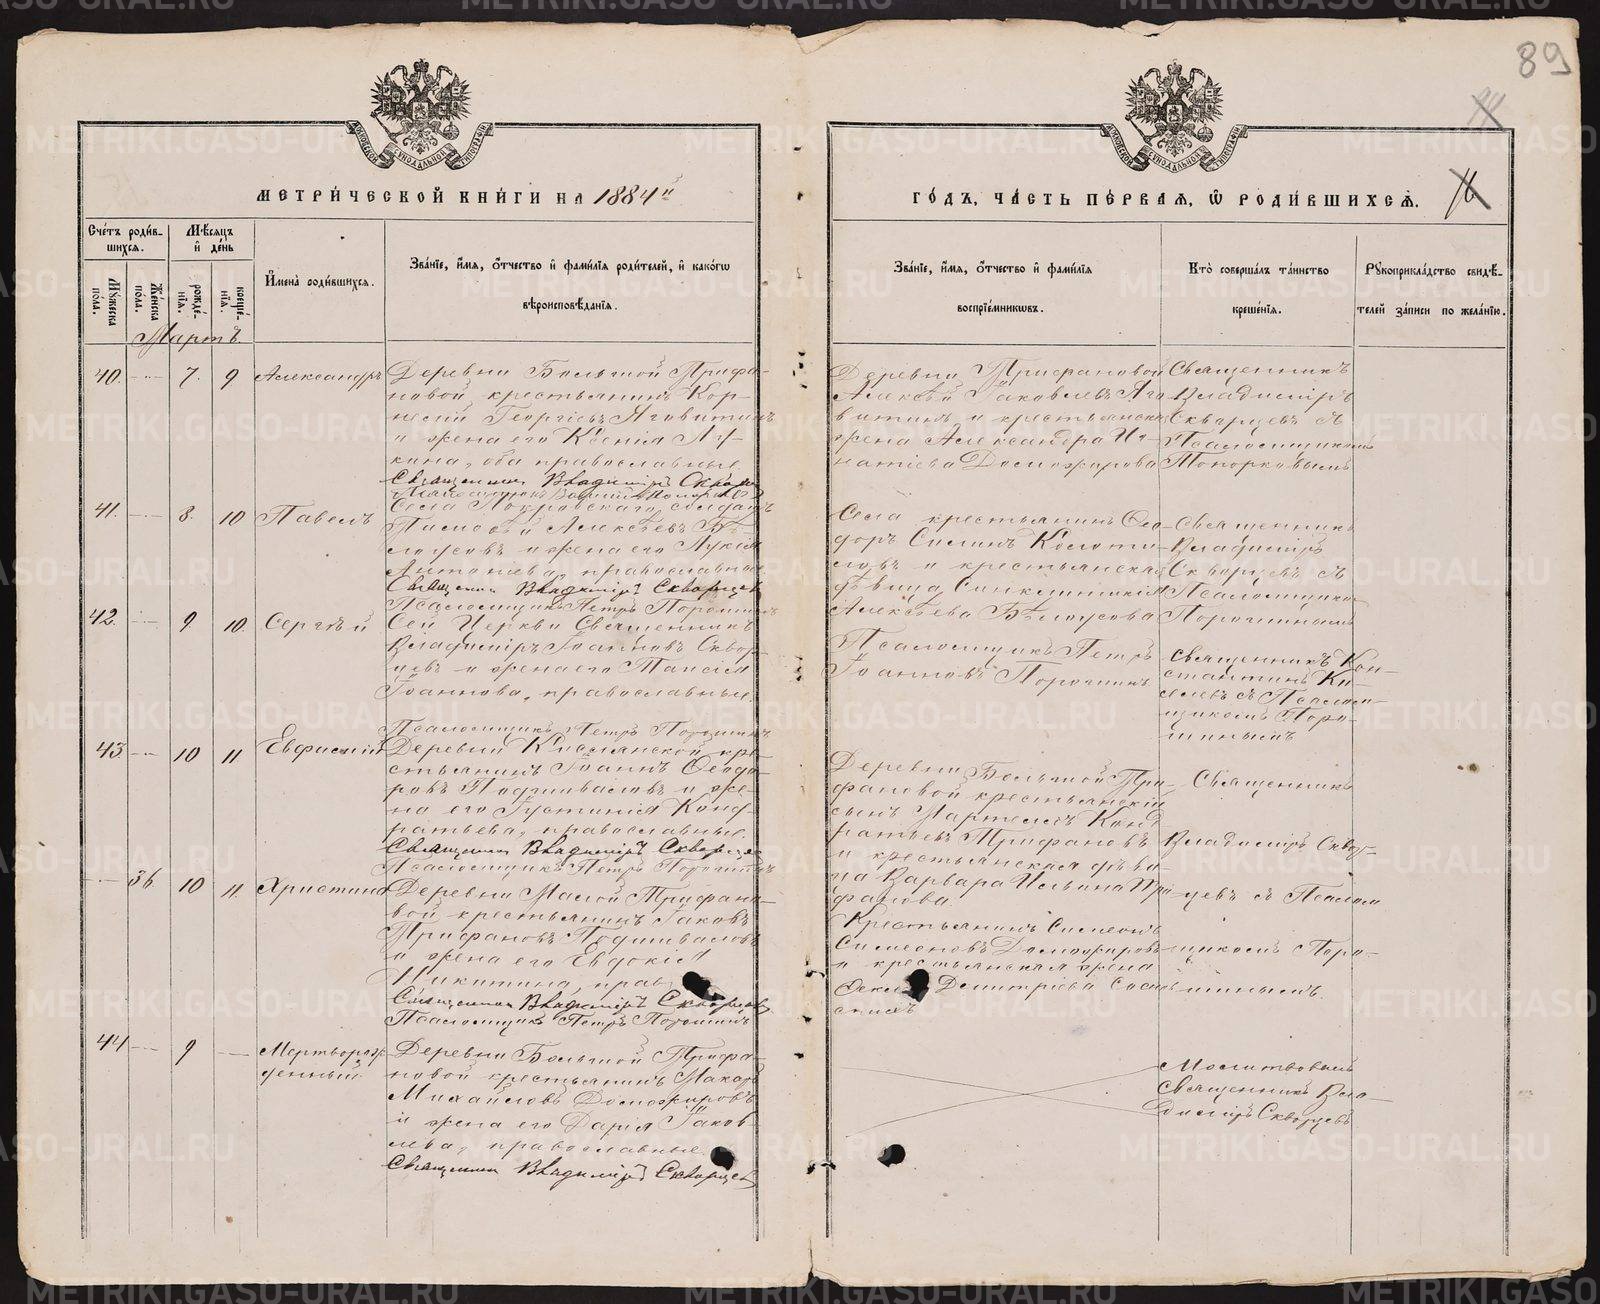 89
МЕТРИ́ЧЕСКОЙ КНИ́ГИ НА 1884й
ГО́ДЪ, ЧА́СТЬ ПЕ́РВАЯ, Ѿ РОДИ́ВШИХСЯ.
Сче́тъ роди́в-
шихся.
Мѣ́сяцъ
и де́нь
Му́жеска по́ла.
Же́нска по́ла.
рожде́-
нія.
креще́-
нія.
Имена̀ роди́вшихся.
Зва́ніе, и́мя, о́тчество и фами́лія роди́телей, и како́гѡ
вѣроисповѣ́данія.
Зва́ніе, и́мя, о́тчество и фами́лія
воспріе́мникѡвъ.
Кто̀ соверша́лъ та́инство
креще́нія.
Рꙋкоприкла́дство свидѣ́-
телей за́писи по жела́нію.
Мартъ.
40. 7. 9 Александръ
Деревни Большой Трифо-
новой крестьянинъ Кор-
нилій Георгіевъ Яговитинъ
и жена его Ксенія Лу-
кина, оба православные.
Священникъ Владимиръ Скворцевъ
Деревни Трифановой
Алексѣй Іаковлевъ Яго-
витинъ и крестьянская
жена Александра Иг-
натіева Доможирова
Священникъ
Владиміръ
Скворцевъ съ
Псаломщикомъ
Топорковымъ
41. 8. 10 Павелъ
Села Покровскаго солдатъ
Тимофѣй Алексѣевъ Бѣ-
лоусовъ и жена его Лукія
Антоніева, православные
Священникъ Владимиръ Скворцевъ
Псаломщикъ Петръ Порошинъ
Села крестьянинъ Ѳео-
доръ Силинъ Колоти-
ловъ и крестьянская
дѣвица Синклитикія
Алексѣева Бѣлоусова
Священникъ
Владиміръ
Скворцевъ съ
Псаломщикомъ
Порошинымъ
42. 9 10. Сергѣй
Сей Церкви Священникъ
Владиміръ Іоанновъ Сквор-
цевъ и жена его Таисія
Іоаннова, православные.
Псаломщикъ Петръ Порошинъ
Псаломщикъ Петръ
Іоанновъ Порошинъ
Священникъ Кон-
стантинъ Ки-
селевъ съ Псалом-
щикомъ Поро-
шинымъ
43. 10 11 Евфимій
Деревни Кислянской кре-
стьянинъ Іоаннъ Ѳеодо-
ровъ Подшиваловъ и же-
на его Іустинія Конд-
ратьева, православные.
Священникъ Владимиръ Скворцевъ
Псаломщикъ Петръ Порошинъ
Деревни Большой Три-
фановой крестьянскій
сынъ Мартемьянъ Конд
ратьевъ Трифановъ
и крестьянская дѣви-
ца Варвара Ильина Три
фанова
Священникъ
Владиміръ Сквор-
цевъ съ Псалом
щикомъ Поро-
шинымъ.
36. 10 11. Христина
Деревни Малой Трифано-
вой крестьянинъ Іаковъ
Трифановъ Подшиваловъ
и жена его Евдокія
Никитина, прав
Священникъ Владимиръ Скворцевъ
Псаломщикъ Петръ Порошинъ
Крестьянинъ Симеонъ
Симеоновъ Доможировъ
и крестьянская жена
Димитріева
44 9 Мертворож-
денный.
Деревни Большой Трифа-
новой крестьянинъ Макаръ
Михайловъ Доможировъ
и жена его Дарія Іаков-
лева, православные
Священникъ Владимиръ Скворцевъ
Молитвовалъ
Священникъ Вла-
диміръ Скворцевъ